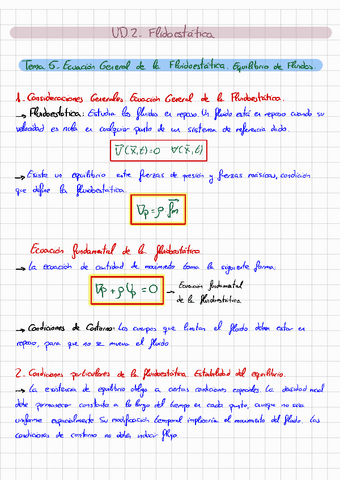 UD 2. Fluidoestática
Tema 5. Ecuación General de la Fluidoestática. Equilibrio de Fluidos.
1. Consideraciones Generales. Ecuación General de la Fluidoestática.
→ Fluidoestática: Estudia los fluidos en reposo. Un fluido está en reposo cuando su
velocidad es nula en cualquier punto de un sistema de referencia dado.
v̄(x̄,t)=0 ∀(x̄,t)
→ Existe un equilibrio entre fuerzas de presión y fuerzas másicas, condición
que define la fluidoestática.
∇p = ρ f̄m
Ecuación fundamental de la fluidoestática
→ La ecuación de cantidad de movimiento toma la siguiente forma.
∇p + ρ∇φ = 0 → Ecuación fundamental
de la fluidoestática.
→ Condiciones de Contorno: Los cuerpos que limitan el fluido deben estar en
reposo, para que no se mueva el fluido
2. Condiciones particulares de la fluidoestática. Estabilidad del equilibrio.
→ La existencia de equilibrio obliga a ciertas condiciones especiales. La densidad local
debe permanecer constante a lo largo del tiempo en cada punto, aunque no sea
uniforme espacialmente. Su modificación temporal implicaría el movimiento del fluido. Las
condiciones de contorno no deben inducir flujo